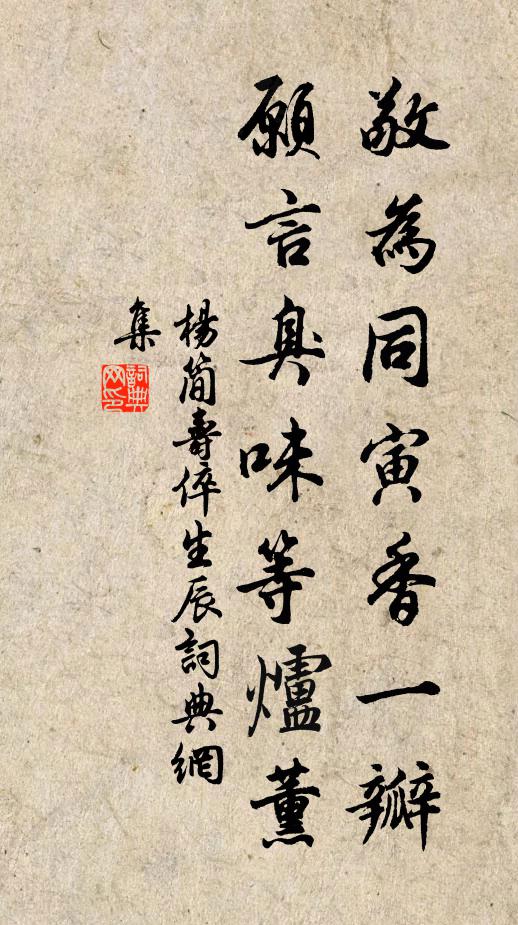 敬為同寅香一瓣
願言臭味等爐薰
楊簡壽倅生辰詞典網
集
詞典
网印